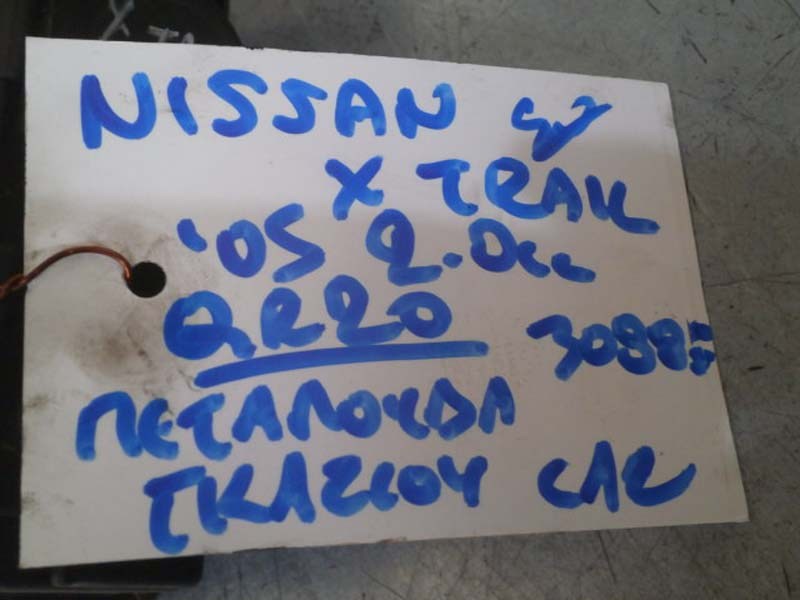 NISSAN
X TRAIL
'05 2.0cc
QR20
3098=
ΠΕΤΑΛΟΥΔΑ
ΓΚΑΖΙΟΥ